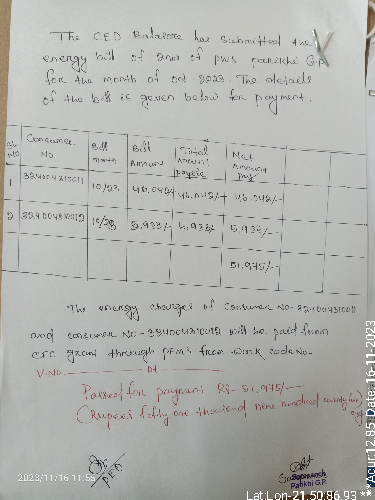 The CED Balasore has submitted the
energy bill of 2nos of PWS Parikhi G.P
for the month of Oct-2023. The details
of the bill is geven below for payment.
Sl No Consumer No Bill month Bill Amount Total Amount payble Net Amount pay
1 324004310011 10/23 46,042/- 46,042/- 46,042/-
2 324004310012 10/23 5,933/- 5,933/- 5,933/-
51,975/-
The energy charges of Consumer No-324004310011
and consumer No-324004310012 will be paid from
CFC grant through PFMS from work code No-
V.No. Dt
Passed for payment RS- 51,975/-
(Rupees fifty one thousand nine hundred seventy five)
only
2023/11/16 11:55
PEO
Sarapanch
Patikhi G.P.
Lat:Lon-21.50:86.93
Acur:12.85 Date:16-11-2023